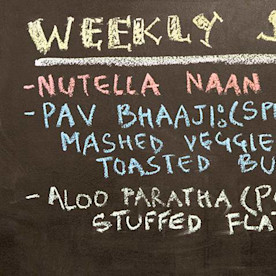 WEEKLY
-NUTELLA NAAN
-PAV BHAAJI:(
MASHED VEGGIE
TOASTED
-ALOO PARATHA (
STUFFED